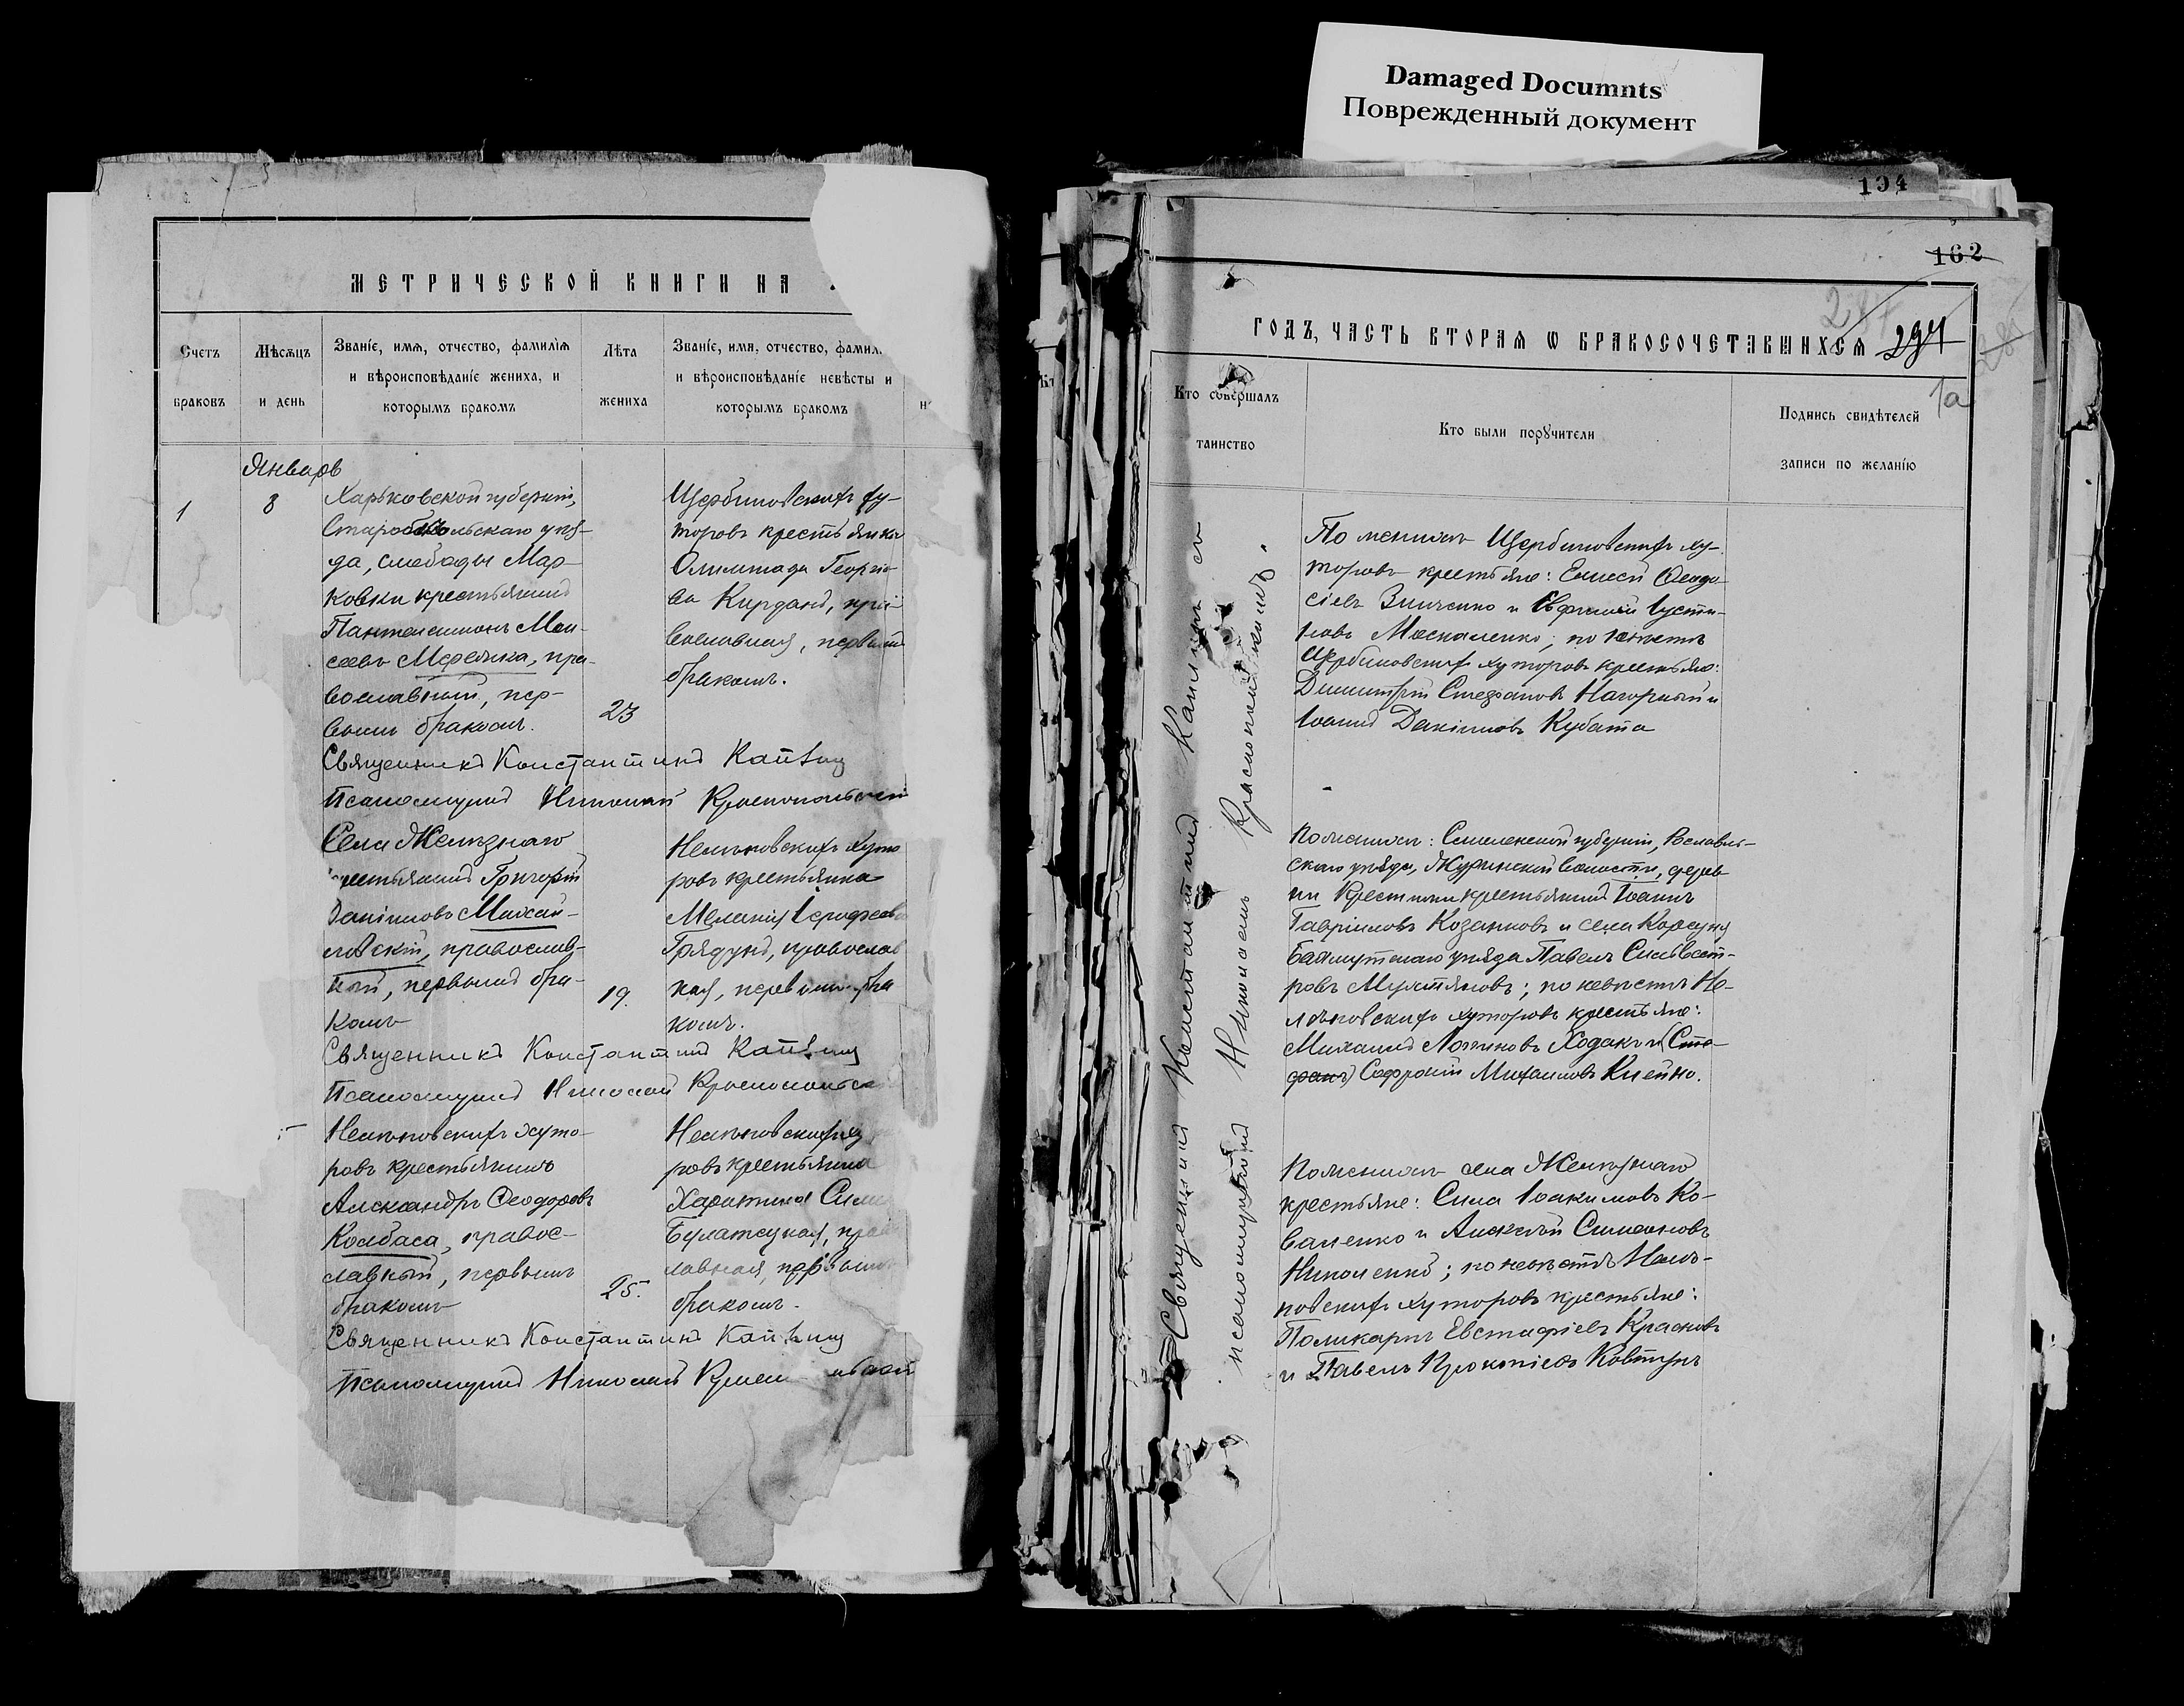 Damaged Documnts
Поврежденный документ
МЕТРИЧЕСКОЙ КНИГИ НА
Счетъ
браковъ
Мѣсяцъ
и день
Званіе, имя, отчество, фамилія
и вѣроисповѣданіе жениха, и
которымъ бракомъ
Лѣта
жениха
Званіе, имя, отчество, фамил
и вѣроисповѣданіе невѣсты и
которымъ бракомъ
Январь
1
8
Харьковской губерніи,
Старобѣльскаго уѣз-
да, слободы Мар-
ковки крестьянинъ
Пантелеимонъ Мои-
сеевъ Мережка, пра-
вославный, пер-
вымъ бракомъ.
23
Щербиновскихъ ху-
торовъ крестьянка
Олимпіада Георгіе-
ва Кирданъ, пра-
вославная, первымъ
бракомъ.
Священникъ Константинъ
Псаломщикъ Николай Краснопольскій
Села Желѣзнаго
крестьянинъ Григорій
Даніиловъ Михай-
ловскій, православ-
ный, первымъ бра-
комъ
19.
Нелѣповскихъ хуто
ровъ крестьянка
Меланія Іерофеева
Грядунъ, православ
ная, первымъ бра
комъ.
Священникъ Константинъ
Псаломщикъ Николай Краснопольск
Нелѣповскихъ хуто-
ровъ крестьянинъ
Александръ Ѳеодоровъ
Колбаса, правос-
лавный, первымъ
бракомъ
25.
Нелѣповскихъ ху
ровъ крестьянка
Харитина Симе
Булатецкая, прав
лавная, первымъ
бракомъ.
Священникъ Константинъ
Псаломщикъ Николай
104
162
294
1а
ГОДЪ, ЧАСТЬ ВТОРАЯ Ѡ БРАКОСОЧЕТАВШИХСЯ
Кто совершалъ
таинство
Кто были порꙋчители
Подпись свидѣтелей
записи по желанію
Священникъ Константинъ со
псаломщикомъ Николаемъ Краснопольскимъ.
По женихѣ Щербиновскихъ ху-
торовъ крестьяне: Елисей Ѳеодо
сіевъ Зинченко и Евфимій Іусти-
новъ Москаленко; по невѣстѣ
Щербиновскихъ хуторовъ крестьяне:
Димитрій Стефановъ Нагорный и
Іоаннъ Даніиловъ Кубата
По женихѣ: Смоленской губерніи, Рославль-
скаго уѣзда, Журинской волости, дерев
ни крестьянинъ Іоаннъ
Гавріиловъ Козаковъ и села Корсунь
Бахмутскаго уѣзда Павелъ Сильвест-
ровъ; по невѣстѣ Не-
лѣповскихъ хуторовъ крестьяне:
Михаилъ Логиновъ Ходакъ и (Сте-
фанъ) Софроній Михаиловъ
По женихѣ села Желѣзнаго
крестьяне: Сила Іоакимовъ Ко-
валенко и Алексѣй Симеоновъ
Николенко; по невѣстѣ Нелѣ-
повскихъ хуторовъ крестьяне:
Поликарпъ Евстафіевъ Красновъ
и Павелъ Прокопіевъ Ковтунъ